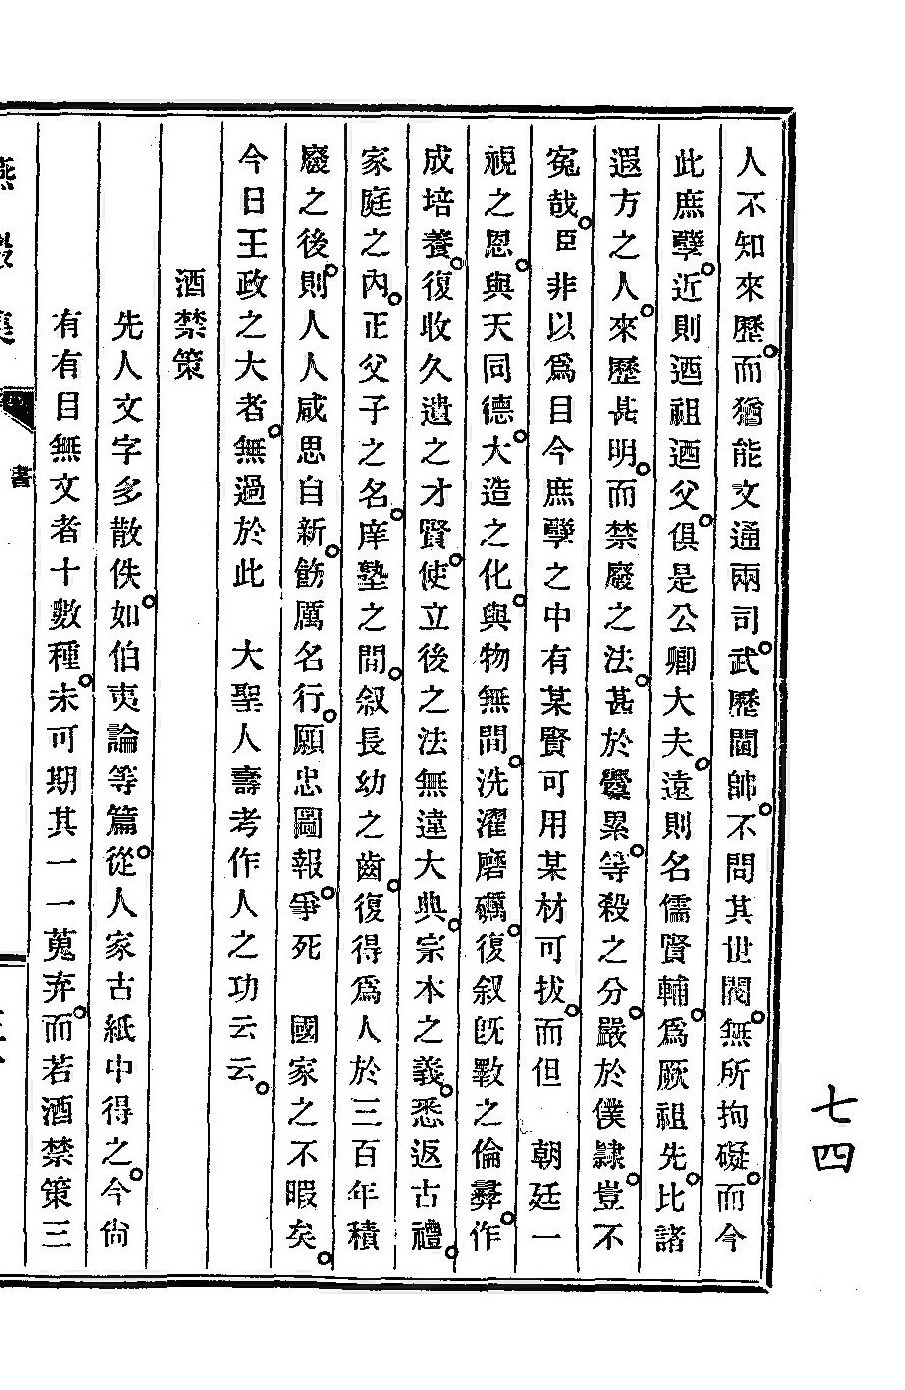 人不知來歷而猶能文通兩司武歷閫帥不問其世閥無所拘礙而今
此庶孽近則迺祖迺父俱是公卿大夫遠則名儒賢輔爲厥祖先比諸
遐方之人來歷甚明而禁廢之法甚於釁累等殺之分嚴於僕隸豈不
寃哉臣非以爲目今庶孽之中有某賢可用某材可拔而但 朝廷一
視之恩與天同德大造之化與物無間洗濯磨礪復叙旣斁之倫彛作
成培養復收久遺之才賢使立後之法無違大典宗本之義悉返古禮
家庭之內正父子之名庠塾之間叙長幼之齒復得爲人於三百年積
廢之後則人人咸思自新飭厲名行願忠圖報爭死 國家之不暇矣
今日王政之大者無過於此 大聖人壽考作人之功云云
酒禁策
先人文字多散佚如伯夷論等篇從人家古紙中得之今尙
有有目無文者十數種未可期其一一蒐弆而若酒禁策三
書
七四